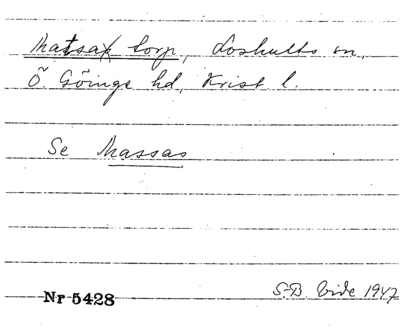 Matsa torp, Loshults sn,
Ö. Göinge hd, Krist l.
Se Massas
S-B. Vide 1947
Nr 5428